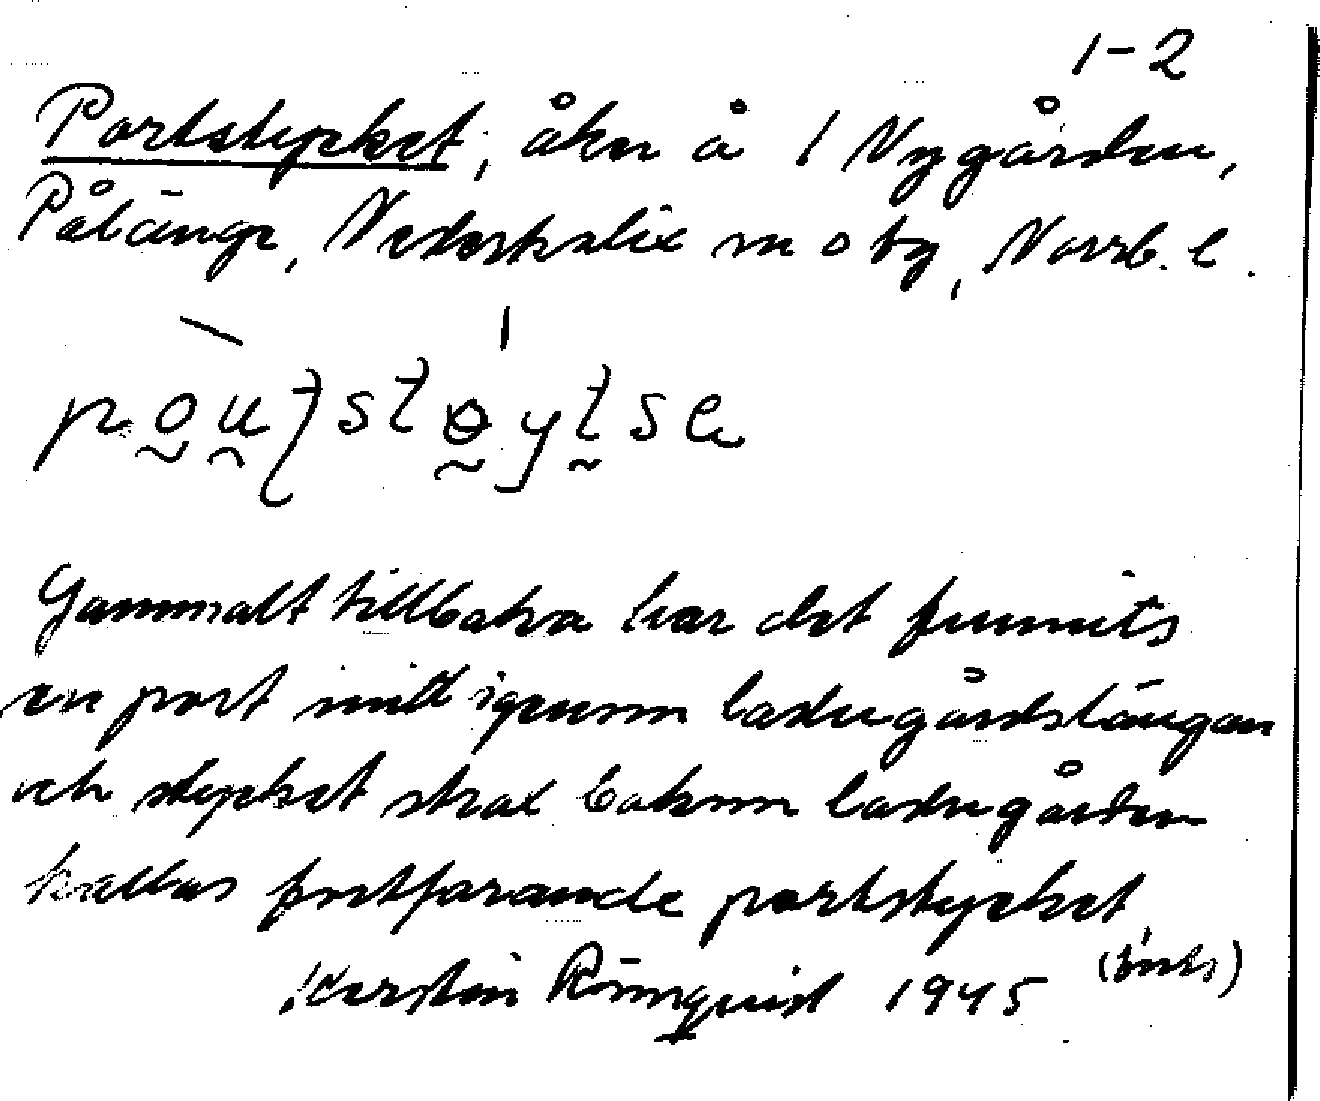 1-2
Portstycket, åker å 1 Nygården,
Pålänge, Nederkalix sn o tg, Norrb. l.
Gammalt tillbaka har det funnits
en port mitt igenom ladugårdslängan
och stycket strax bakom ladugården
kallas fortfarande portstycket
Kerstin Rönnquist 1945